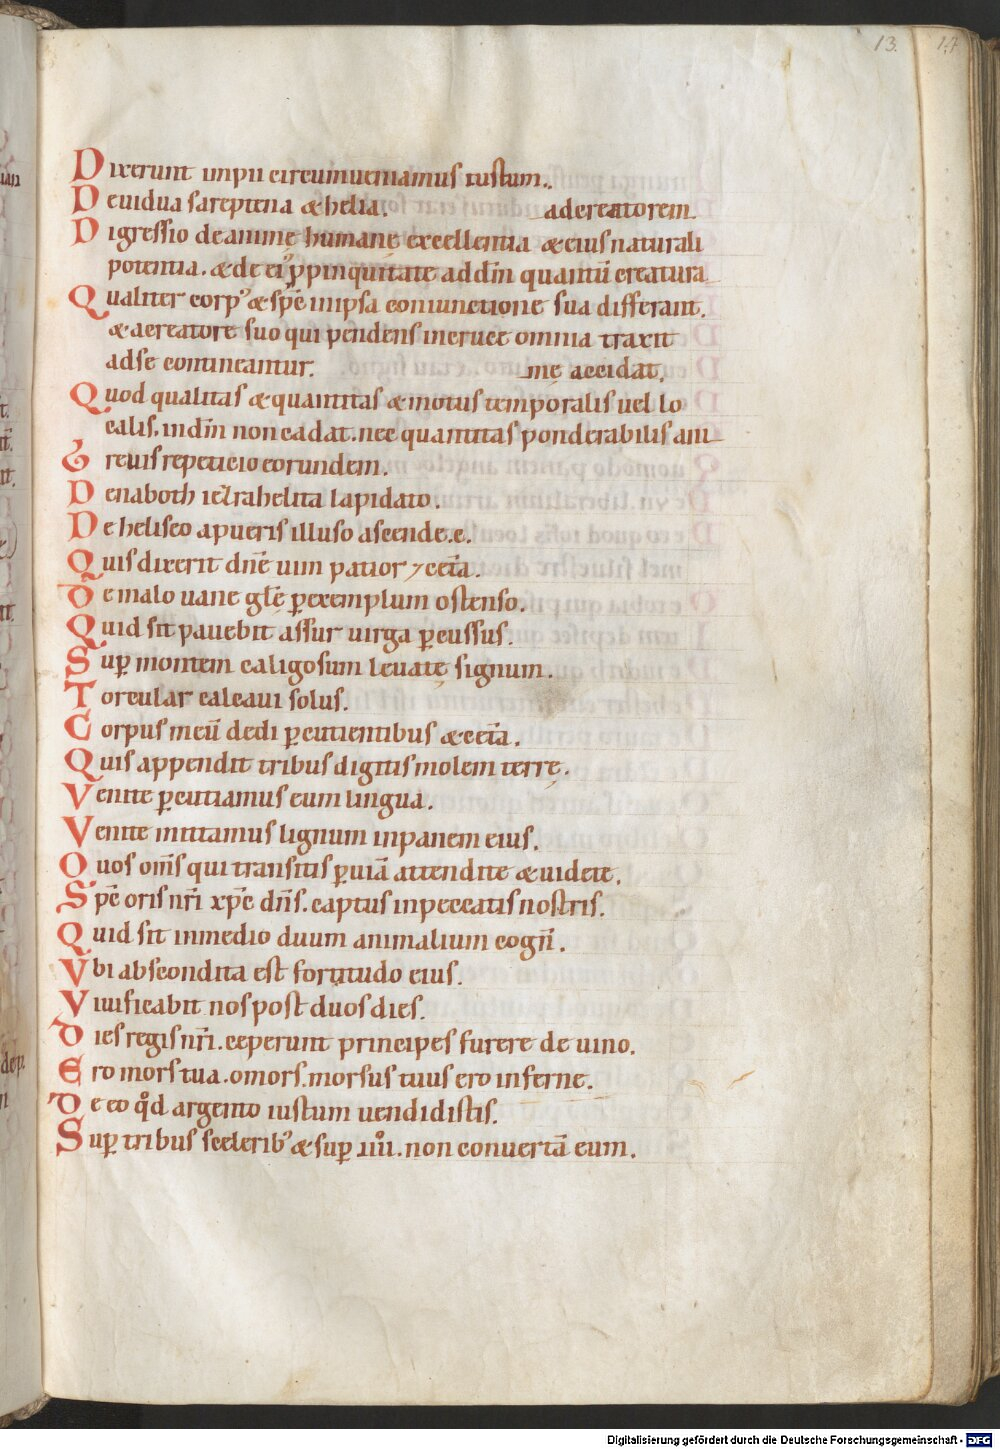 13. 17
Dixerunt impii circumueniamus iustum.
De uidua sareptena & helia. ad creatorem
Digressio de anime humane excellentia & eius naturali
potentia. & de ei' ppinquitate ad dm̄ quantū creatura
Qualiter corp' & spē in ipsa coniunctione sua differant.
& a creatore suo qui pendens in cruce omnia traxit
ad se contineantur. me accidat.
Quod qualitas & quantitas & motus temporalis uel lo
calis. in dm̄ non cadat. nec quantitas ponderabilis ani
reuis repeticio eorundem.
De naboth iezrahelita lapidato.
De heliseo a pueris illuso ascende. c.
Quis dixerit dnē uim patior ⁊ cetā.
De malo uane glē p exemplum ostenso.
Quid sit pauebit assur uirga pcussus.
Sup montem caligosum leuate signum.
Torcular calcaui solus.
Corpus meū dedi pcutientibus & cetā.
Quis appendit tribus digitis molem terrę.
Venite pcutiamus eum lingua.
Venite mittamus lignum in panem eius.
O uos om̄s qui transitis p uiā attendite & uidete.
Spē oris nr̄i xp̄e dn̄s. captus in peccatis nostris.
Quid sit in medio duum animalium cogn̄.
Vbi abscondita est fortitudo eius.
Viuificabit nos post duos dies.
Dies regis nr̄i. ceperunt principes furere de uino.
Ero mors tua. o mors. morsus tuus ero inferne.
De eo qd argento iustum uendidistis.
Sup tribus scelerib' & sup iiii. non conuertā eum.
Digitalisierung gefördert durch die Deutsche Forschungsgemeinschaft - DFG